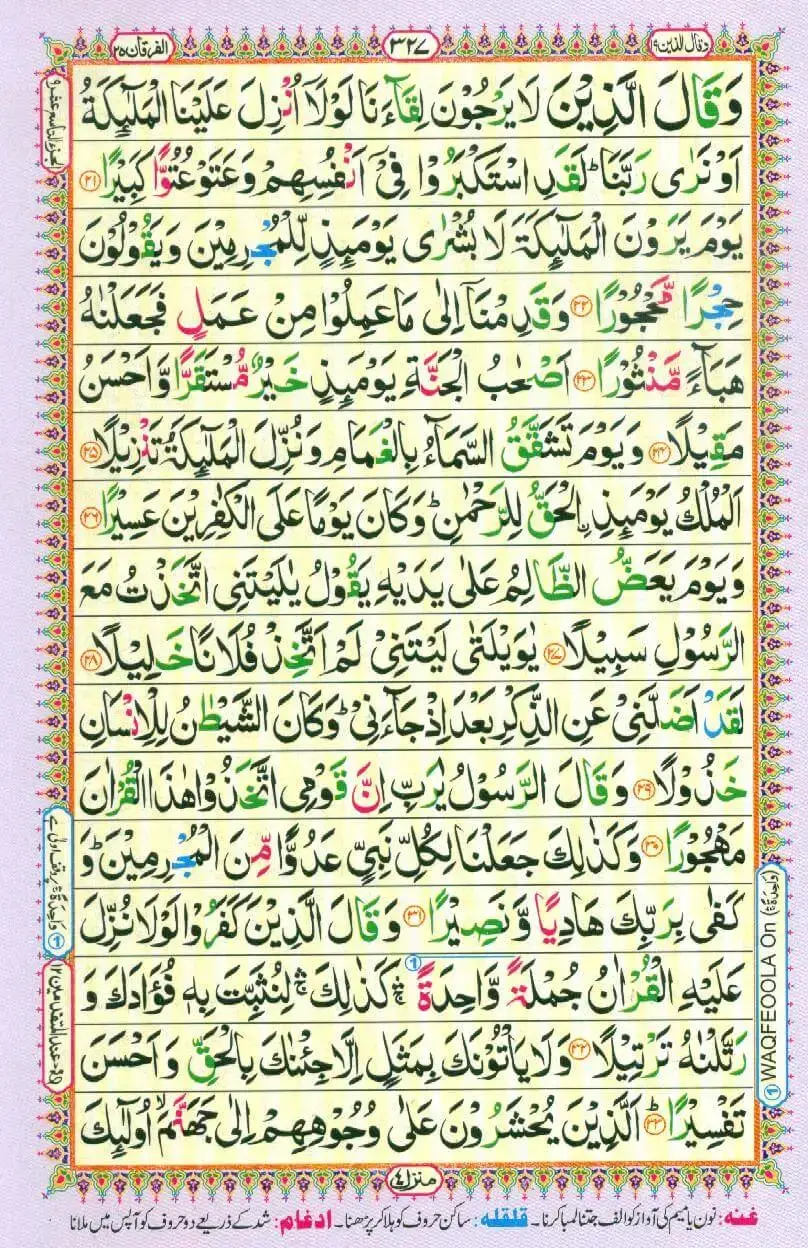 وقال الذین ۱۹
۳۲۷
الفرقان ۲۵
وَقَالَ الَّذِیْنَ لَا یَرْجُوْنَ لِقَآءَنَا لَوْلَاۤ اُنْزِلَ عَلَیْنَا الْمَلٰٓىِٕكَةُ
اَوْ نَرٰی رَبَّنَا ؕ لَقَدِ اسْتَكْبَرُوْا فِیْۤ اَنْفُسِهِمْ وَعَتَوْ عُتُوًّا كَبِیْرًا ﴿۲۱﴾
یَوْمَ یَرَوْنَ الْمَلٰٓىِٕكَةَ لَا بُشْرٰی یَوْمَىِٕذٍ لِّلْمُجْرِمِیْنَ وَیَقُوْلُوْنَ
حِجْرًا مَّحْجُوْرًا ﴿۲۲﴾ وَقَدِمْنَاۤ اِلٰی مَا عَمِلُوْا مِنْ عَمَلٍ فَجَعَلْنٰهُ
هَبَآءً مَّنْثُوْرًا ﴿۲۳﴾ اَصْحٰبُ الْجَنَّةِ یَوْمَىِٕذٍ خَیْرٌ مُّسْتَقَرًّا وَّاَحْسَنُ
مَقِیْلًا ﴿۲۴﴾ وَیَوْمَ تَشَقَّقُ السَّمَآءُ بِالْغَمَامِ وَنُزِّلَ الْمَلٰٓىِٕكَةُ تَنْزِیْلًا ﴿۲۵﴾
اَلْمُلْكُ یَوْمَىِٕذِ ِ۟الْحَقُّ لِلرَّحْمٰنِ ؕ وَكَانَ یَوْمًا عَلَی الْكٰفِرِیْنَ عَسِیْرًا ﴿۲۶﴾
وَیَوْمَ یَعَضُّ الظَّالِمُ عَلٰی یَدَیْهِ یَقُوْلُ یٰلَیْتَنِی اتَّخَذْتُ مَعَ
الرَّسُوْلِ سَبِیْلًا ﴿۲۷﴾ یٰوَیْلَتٰی لَیْتَنِیْ لَمْ اَتَّخِذْ فُلَانًا خَلِیْلًا ﴿۲۸﴾
لَقَدْ اَضَلَّنِیْ عَنِ الذِّكْرِ بَعْدَ اِذْ جَآءَنِیْ ؕ وَكَانَ الشَّیْطٰنُ لِلْاِنْسَانِ
خَذُوْلًا ﴿۲۹﴾ وَقَالَ الرَّسُوْلُ یٰرَبِّ اِنَّ قَوْمِی اتَّخَذُوْا هٰذَا الْقُرْاٰنَ
مَهْجُوْرًا ﴿۳۰﴾ وَكَذٰلِكَ جَعَلْنَا لِكُلِّ نَبِیٍّ عَدُوًّا مِّنَ الْمُجْرِمِیْنَ ؕ وَ
كَفٰی بِرَبِّكَ هَادِیًا وَّنَصِیْرًا ﴿۳۱﴾ وَقَالَ الَّذِیْنَ كَفَرُوْا لَوْلَا نُزِّلَ
عَلَیْهِ الْقُرْاٰنُ جُمْلَةً وَّاحِدَةً ۛۚ كَذٰلِكَ ۛۚ لِنُثَبِّتَ بِهٖ فُؤَادَكَ وَ
رَتَّلْنٰهُ تَرْتِیْلًا ﴿۳۲﴾ وَلَا یَاْتُوْنَكَ بِمَثَلٍ اِلَّا جِئْنٰكَ بِالْحَقِّ وَاَحْسَنَ
تَفْسِیْرًا ؕ ﴿۳۳﴾ اَلَّذِیْنَ یُحْشَرُوْنَ عَلٰی وُجُوْهِهِمْ اِلٰی جَهَنَّمَ ۙ اُولٰٓىِٕكَ
الجزء التاسع عشر ۱۹
① WAQFEOOLA On (وَاحِدَةً ۛۚ)
① وَاحِدَةً ۛۚ پر وقف اولیٰ ہے
منزل ۴
غنہ: نون یا میم کی آواز کو الف جتنا لمبا کرنا۔ قلقلہ: ساکن حروف کو ہلا کر پڑھنا۔ ادغام: شد کے ذریعے دو حروف کو آپس میں ملانا